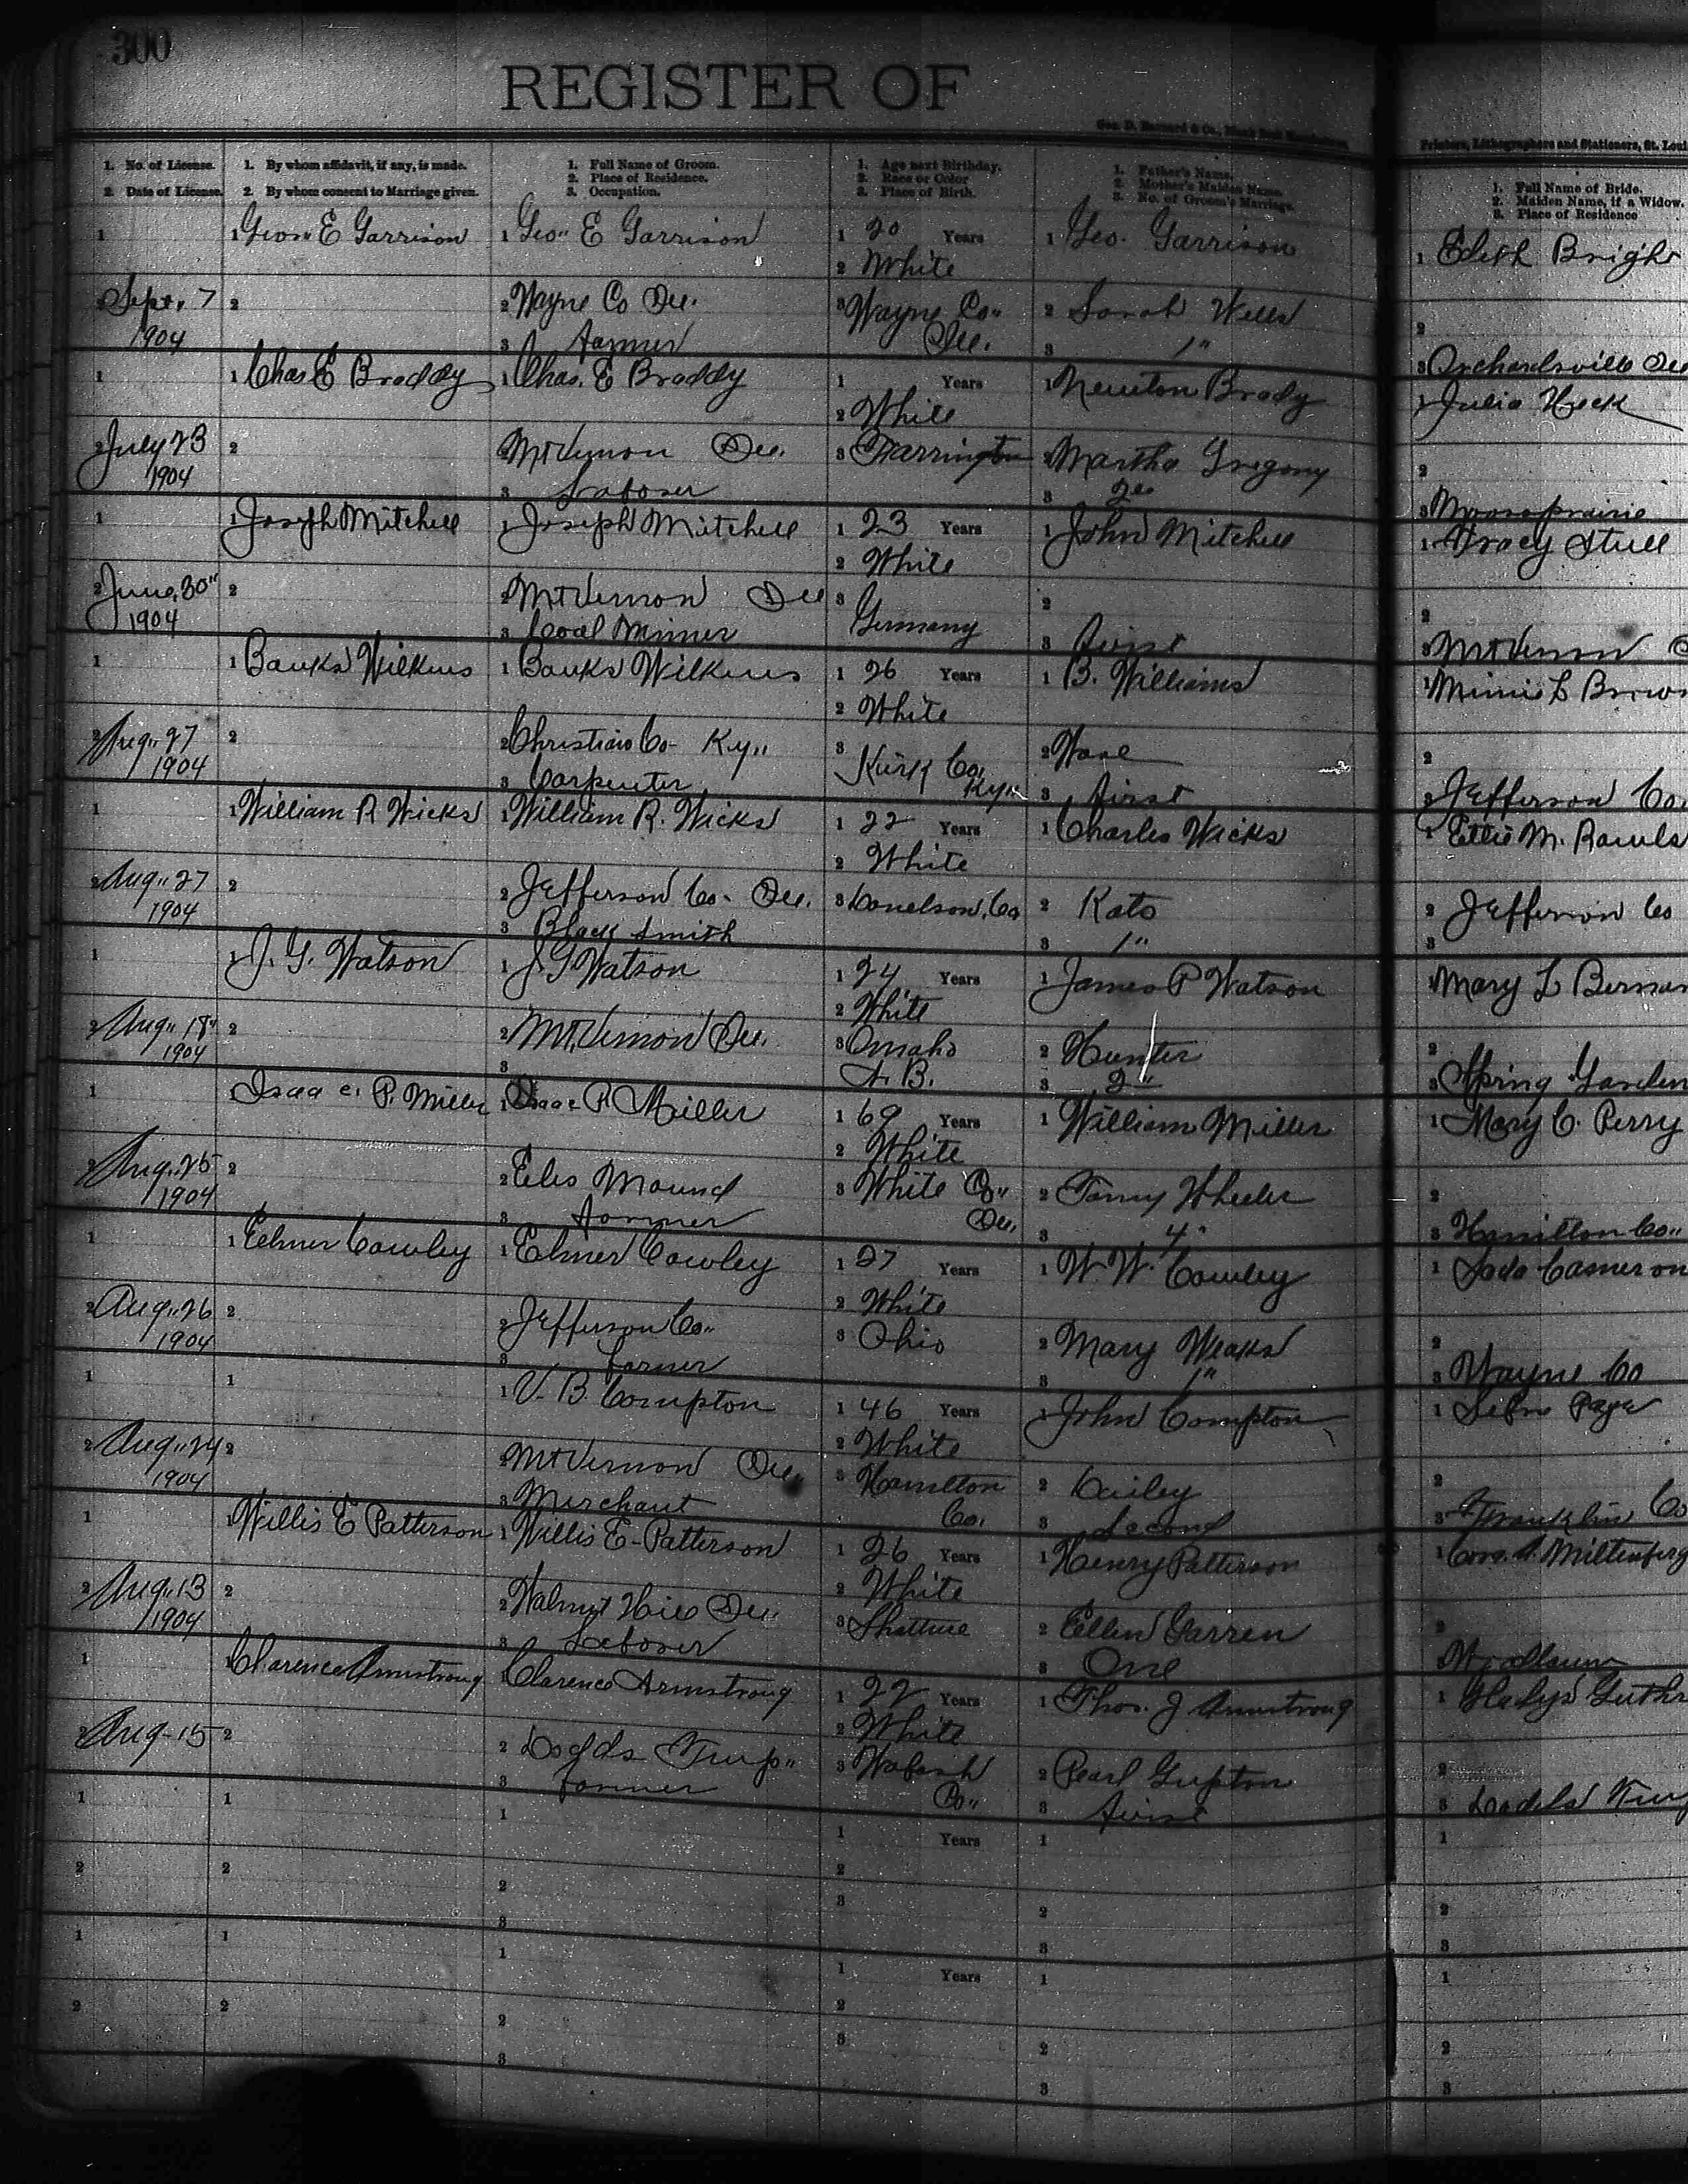 300
REGISTER OF
Geo. D. Barnard & Co.,
Printers, Lithographers and Stationers, St. Loui
1. No. of License.
2. Date of License.
1. By whom affidavit, if any, is made.
2. By whom consent to Marriage given.
1. Full Name of Groom.
2. Place of Residence.
3. Occupation.
1. Age next Birthday.
2. Race or Color
3. Place of Birth.
1. Father's Name.
2. Mother's Maiden Name.
3. No. of Groom's Marriage.
1. Full Name of Bride.
2. Maiden Name, if a Widow.
3. Place of Residence
1 1 Geo" E Garrison 1 Geo" E Garrison 1 20 Years 1 Geo. Garrison 1 Edith Bright
2 White
2 Sept. 7 2 2 Wayne Co Ill. 3 Wayne Co" 2 Sarah Wells 2
1904 3 Farmer Ill. 3 1" 3 Orchardsville Ill
1 1 Chas E Braddy 1 Chas. E Braddy 1 Years 1 Newton Brady 1 Julia Heck
2 White
2 July 23 2 2 Mt Vernon Ill. 3 Farrington 2 Martha Gregory 2
1904 3 Laborer 3 2" 3 Mooresprairie
1 1 Joseph Mitchell 1 Joseph Mitchell 1 23 Years 1 John Mitchell 1 Tracy Stull
2 White
2 June 30" 2 2 Mt Vernon Ill 3 Germany 2 2
1904 3 Coal Minner 3 First 3 Mt Vernon
1 1 Banks Wilkins 1 Banks Wilkins 1 26 Years 1 B. Williams 1 Minnie L Brow
2 White
2 Aug" 27 2 2 Christian Co- Ky" 3 Co. 2 2
1904 3 Carpenter Ky" 3 First 3 Jefferson Co.
1 1 William R Wicks 1 William R. Wicks 1 22 Years 1 Charles Wicks 1 M. Rawls
2 White
2 Aug" 27 2 2 Jefferson Co- Ill. 3 Donelson, Co 2 Kate 2 Jefferson Co
1904 3 Black Smith 3 1" 3
1 1 J. G. Watson 1 J. G Watson 1 24 Years 1 James P Watson 1 Mary L
2 White
2 Aug" 18" 2 2 Mt. Vernon Ill. 3 Omaha 2 Hunter 2
1904 3 N. B. 3 2" 3 Spring Garden
1 1 Isaac P. Miller 1 Isaac P Miller 1 69 Years 1 William Miller 1 Mary C. Perry
2 White
2 Aug. 25 2 2 Mound 3 White Co" 2 Wheeler 2
1904 3 Farmer Ill. 3 4" 3 Hamilton Co"
1 1 Elmer Cowley 1 Elmer Cowley 1 27 Years 1 W. W. Cowley 1 Cameron
2 White
2 Aug" 26 2 2 Jefferson Co" 3 Ohio 2 Mary Weaks 2
1904 3 Farmer 3 1" 3 Wayne Co
1 1 1 V. B. Compton 1 46 Years 1 John Compton 1 Page
2 White
2 Aug" 24 2 2 Mt Vernon Ill" 3 Hamilton 2 Cailey 2
1904 3 Merchant Co. 3 Second 3 Franklin Co
1 1 Willis E Patterson 1 Willis E- Patterson 1 26 Years 1 Henry Patterson 1 Miltenberg
2 White
2 Aug" 13 2 2 Walnut Hill Ill 3 2 Ellen Garren 2
1904 3 Laborer 3 One 3 Woodlawn
1 1 Clarence Armstrong 1 Clarence Armstrong 1 22 Years 1 Thos. J Armstrong 1 Gladys Guthr
2 White
2 Aug- 15 2 2 Dodds Twp" 3 Wabash 2 Pearl Gupton 2
3 Farmer Co" 3 First 3 Dodds
1 1 1 1 Years 1 1
2 2 2 2 2 2
3 3 3 3
1 1 1 1 Years 1 1
2 2 2 2 2 2
3 3 3 3